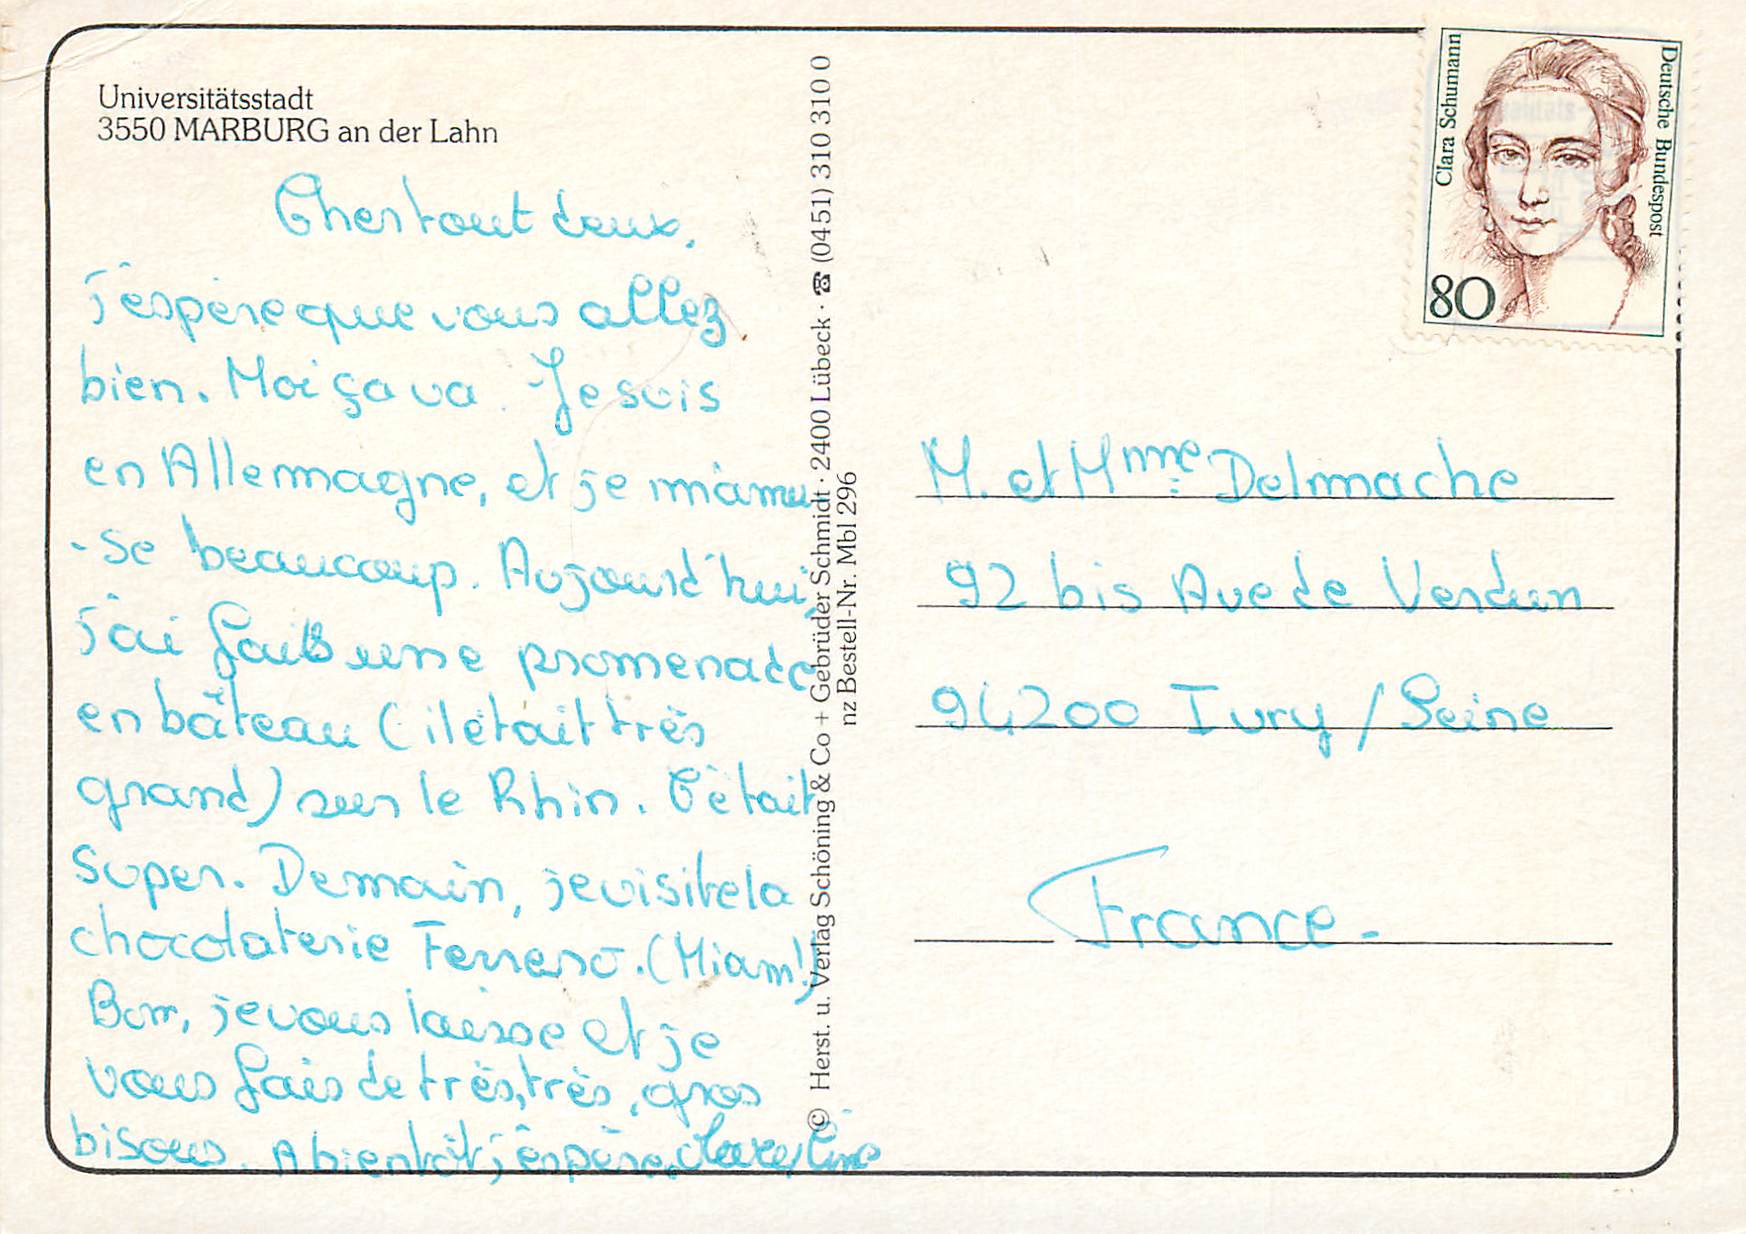 Universitätsstadt
3550 MARBURG an der Lahn
Chers tout deux,
j'espère que vous allez
bien. Moi ça va. Je suis
en Allemagne, et je m'amu
-se beaucoup. Aujourd'hui,
j'ai fait une promenade
en bâteau (il était très
grand) sur le Rhin. C'était
super. Demain, je visite la
chocolaterie Ferrero. (Miam!)
Bon, je vous laisse et je
vous fais de très, très, gros
bisous. A bientôt j'espère,
© Herst. u. Verlag Schöning & Co + Gebrüder Schmidt · 2400 Lübeck · ☎ (0451) 310 310 0
nz Bestell-Nr. Mbl 296
Clara Schumann
Deutsche Bundespost
80
M. et Mme Delmache
92 bis Ave de Verdun
94200 Ivry / Seine
France-